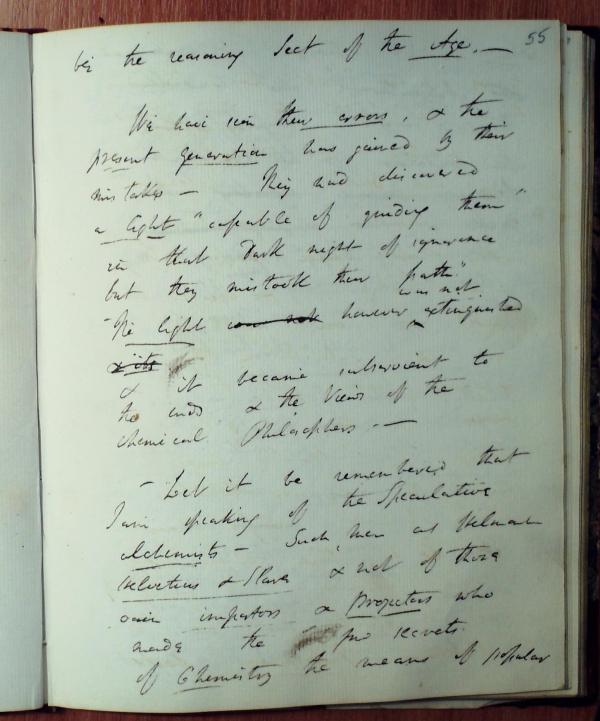 55
be the reasoning Sect of the Age. —
We have seen their errors, & the
present generation has gained by their
mistakes — They had discovered
a light "capable of guiding them"
in that dark night of ignorance
but they mistook their path."
was not
The light was not however extinguished
& its
& it became subservient to
the ends & the views of the
chemical Philosophers. —
— Let it be remembered that
I am speaking of the Speculative
alchemists — Such men as
Helvetius & & not of those
vain impostors & Projectors who
made the secrets
of Chemistry the means of popular